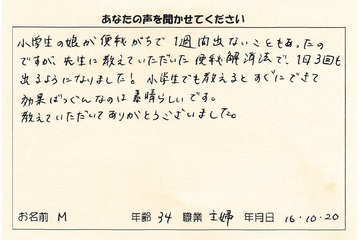 あなたの声を聞かせてください
小学生の娘が便秘がちで1週間出ないこともあったの
ですが、先生に教えていただいた便秘解消法で、1日3回も
出るようになりました！小学生でも教えるとすぐにできて
効果ばつぐんなのは素晴らしいです。
教えていただいてありがとうございました。
お名前 M 年齢 34 職業 主婦 年月日 16.10.20